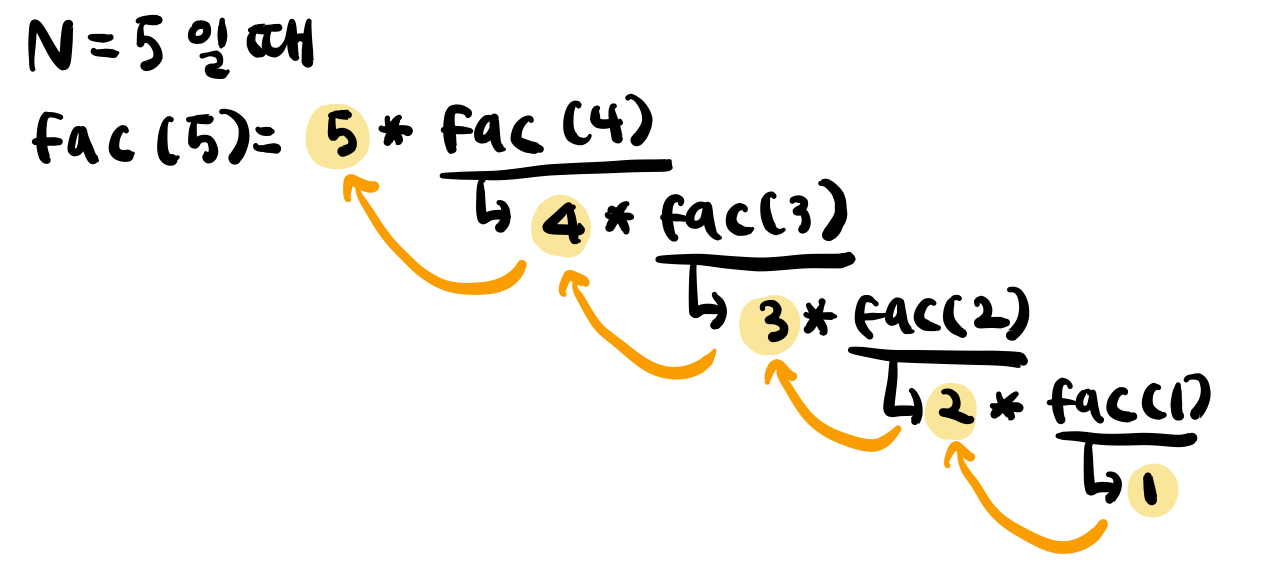 N=5 일 때
fac(5)= 5 * fac(4)
4 * fac(3)
3 * fac(2)
2 * fac(1)
1